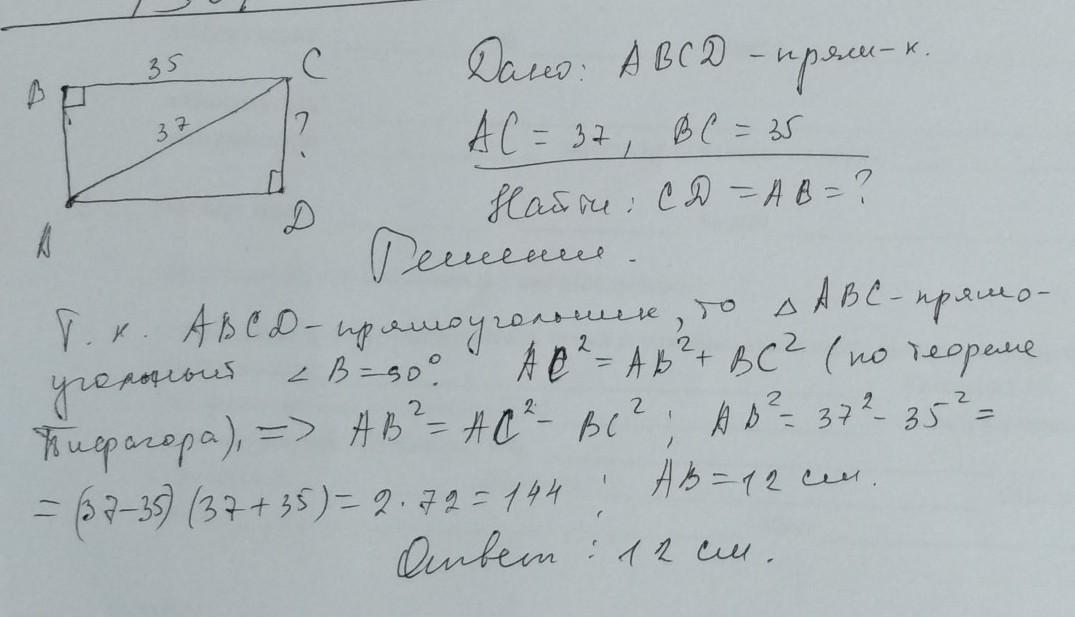 35
B
C
37
?
A
D
Дано: ABCD - прям-к.
AC = 37, BC = 35
Найти: CD = AB = ?
Решение.
Т. к. ABCD - прямоугольник, то △ ABC - прямо-
угольный ∠ B = 90°. AC² = AB² + BC² (по теореме
Пифагора), => AB² = AC² - BC² ; AB² = 37² - 35² =
= (37-35) (37+35) = 2·72 = 144 ; AB = 12 см.
Ответ : 12 см.